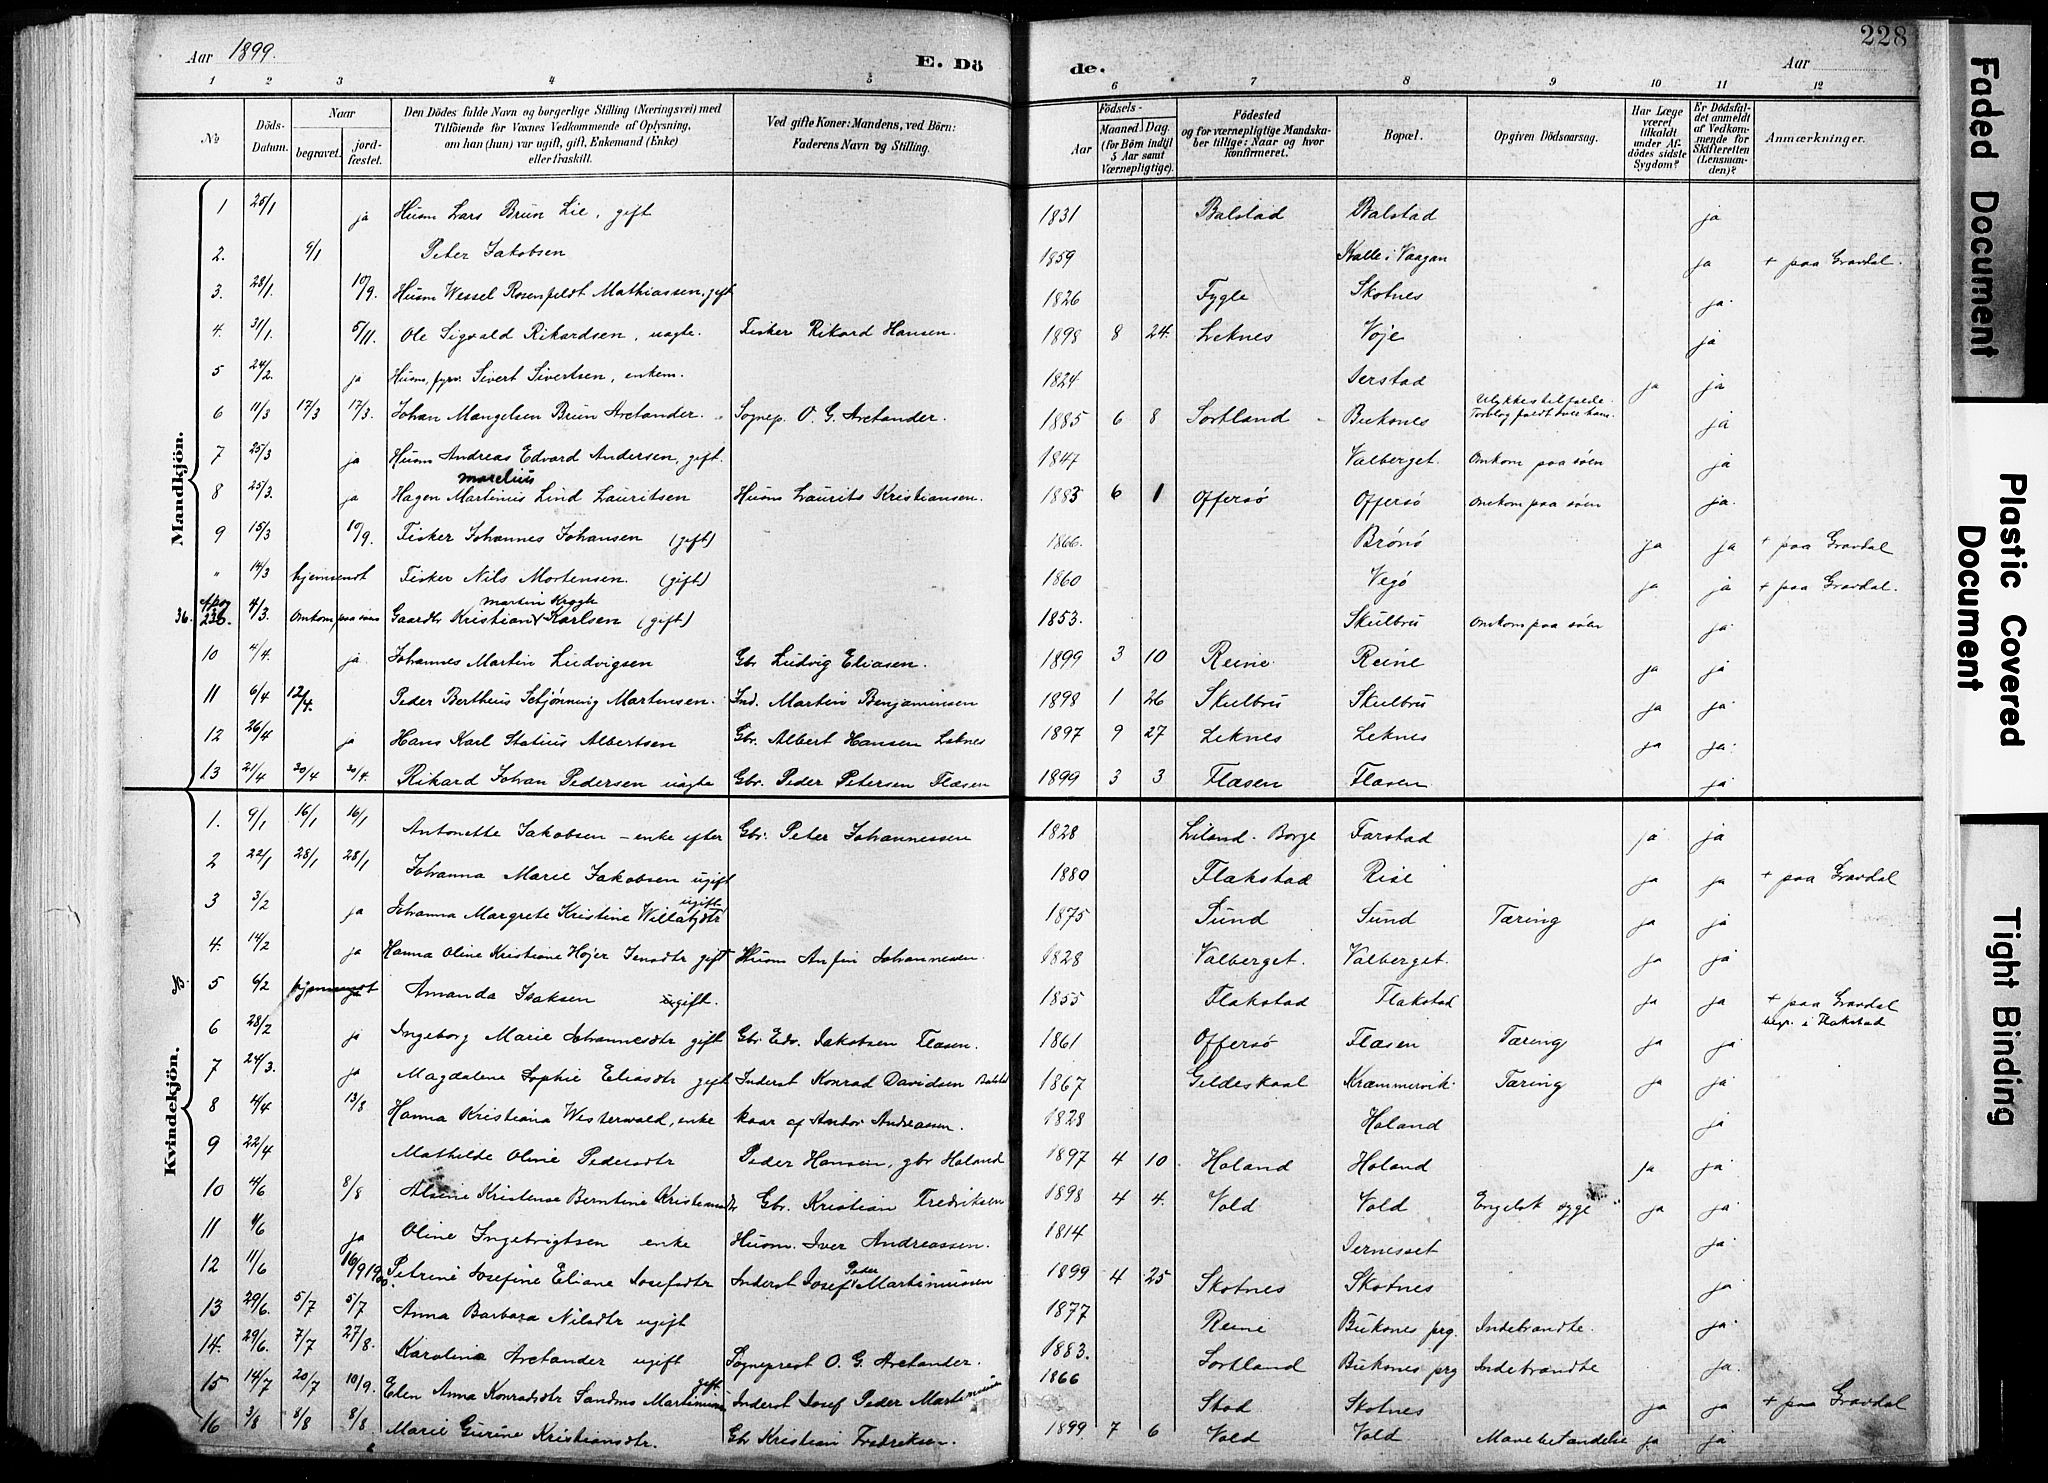 Aar 1899.
E. Dö
de.
Aar
228
1 2 3 4 5 6 7 8 9 10 11 12
No
Döds-Datum.
Naar
begravet.
jord-fæstet.
Den Dödes fulde Navn og borgerlige Stilling (Næringsvei) med
Tilföiende for Voxnes Vedkommende af Oplysning,
om han (hun) var ugift, gift, Enkemand (Enke)
eller fraskilt.
Ved gifte Koner: Mandens, ved Börn:
Faderens Navn og Stilling.
Födsels-
Aar
Maaned. Dag.
(for Börn indtil
5 Aar samt
Værnepligtige).
Födested
og for værnepligtige Mandska-
ber tillige: Naar og hvor
konfirmeret.
Bopæl.
Opgiven Dödsaarsag.
Har Læge
været
tilkaldt
under Af-
dödes sidste
Sygdom?
Er Dödsfal-
det anmeldt
af Vedkom-
mende for
Skifteretten
(Lensman-
den)?
Anmærkninger.
Mandkjön.
1 25/1 ja Husm Lars Brun Lie, gift 1831 Balstad Balstad ja
2. 9/1 Peter Jakobsen 1859 Kalle i Vaagan ja + paa Gravdal.
3. 28/1. 10/9. Husm Wessel Rosenfeldt Mathiassen, gift 1826 Fygle Skotnes ja.
4. 31/1. 5/11. Ole Sigvald Rikardsen, uagte. Fisker Rikard Hansen. 1898 8 24. Leknes Voje ja
5 24/2. ja Husm, fyrv. Sivert Sivertsen, enkem. 1824 Jerstad ja ja
6 11/3 17/3 17/3. Johan Mangelsen Brun Arctander. Sognep. O. G. Arctander. 1885 6 8 Sortland Buksnes Ulykkestilfælde. Torvlog faldt over ham. ja
7 25/3 ja Husm Andreas Edvard Andersen, gift. 1847 Valberget. Omkom paa søen ja
marelius
8 25/3. ja Hagen Martinus Lind Lauritsen Husm Laurits Kristiansen. 1883 6 1 Offersö Offersö Omkom paa søen ja.
9 15/3 10/9. Fisker Johannes Johansen (gift) 1866. Brønø ja ja + paa Gravdal
" 14/3 hjemsendt Fisker Nils Mortensen. (gift) 1860 Vegø ja ja + paa Gravdal.
martin Krogh
36. 236. 4/3. Omkom paa søen Gaardbr Kristian Karlsen (gift) 1853. Skulbru Omkom paa søen ja.
10 4/4. ja. Johannes Martin Ludvigsen Gbr Ludvig Eliasen. 1899 3 10 Reine Reine ja ja
11 6/4 12/4. Peder Bertheus Schjønning Martensen. Ind. Martin Benjaminsen 1898 1 26 Skulbru Skulbru ja ja.
12 26/4 ja Hans Karl Statius Albertsen Gbr. Albert Hansen Leknes 1897 9 27 Leknes Leknes ja ja.
13 21/4 30/4 30/4. Rikard Johan Pedersen uagte Gbr. Peder Petersen Flæsen 1899 3 3 Flæsen Flæsen ja
Kvindekjön.
1. 9/1 16/1 16/1 Antonette Jakobsen - enke efter Gbr. Peter Johannessen 1828 Liland. Borge Farstad ja ja
2 22/1 28/1 28/1 Johanna Marie Jakobsen ugift 1880 Flakstad Rise ja ja + paa Gravdal
ugift
3 3/2 ja Johanna Margrete Kristine Willasdtr 1875 Sund Sund Tæring ja ja
4. 14/2 ja Hanna Oline Kristiane Højer Jensdtr gift Husm Anfin Johannesen. 1828 Valberget. Valberget. ja ja
5 6/2 hjemsendt ja Amanda Isaksen ugift. 1855 Flakstad Flakstad ja ja + paa Gravdal
begr. i Flakstad
6 28/2 ja Ingeborg Marie Johannesdtr gift Gbr. Edv. Jakobsen Flæsen. 1861 Offersø Flæsen Tæring ja ja
7 24/3. ja Magdalene Sophie Eliasdtr gift Inderst Konrad Davidsen 1867 Gildeskaal Kræmmervik. Tæring ja ja
8 4/4 13/8 Hanna Kristiana Westerwald, enke kaar af Anton Andreassen. 1828 Holand ja
9 22/4 Mathilde Oline Pedersdtr Peder Hansen, gbr Holand 1897 4 10 Holand Holand ja ja
10 4/6 8/8 Alsine Kristense Berntine Kristiansdtr Gbr. Kristian Fredriksen 1898 4 4. Vold Vold Engelsk syge ja ja
11 4/6 ja Oline Ingebrigtsen enke Husm. Iver Andreassen. 1814 Jernesset ja
12 11/6 16/9 1900. Petrine Josefine Eliane Josefsdtr Inderst Josef Peder Martinussen 1899 4 25 Skotnes Skotnes ja
13 29/6. 5/7 5/7 Anna Barbara Nilsdtr ugift 1877 Reine Buksnes prg. Indebrændte. ja
14. 29/6. 7/7 27/8. Karoline Arctander ugift Sogneprest O. G. Arctander. 1883. Sortland Buksnes prg Indebrændte ja.
gift
15 14/7 20/7 10/9. Elen Anna Konradsdtr Sandmo Martinusen Inderst Josef Peder Martinusen 1866 Stad Skotnes ja ja + paa Gravdal
16 3/8 8/8 8/8 Marie Gurine Kristiansdtr. Gbr Kristian Fredriksen. 1899. 7 6 Vold Vold Mavebetændelse ja ja
Faded Document
Plastic Covered
Document
Tight Binding